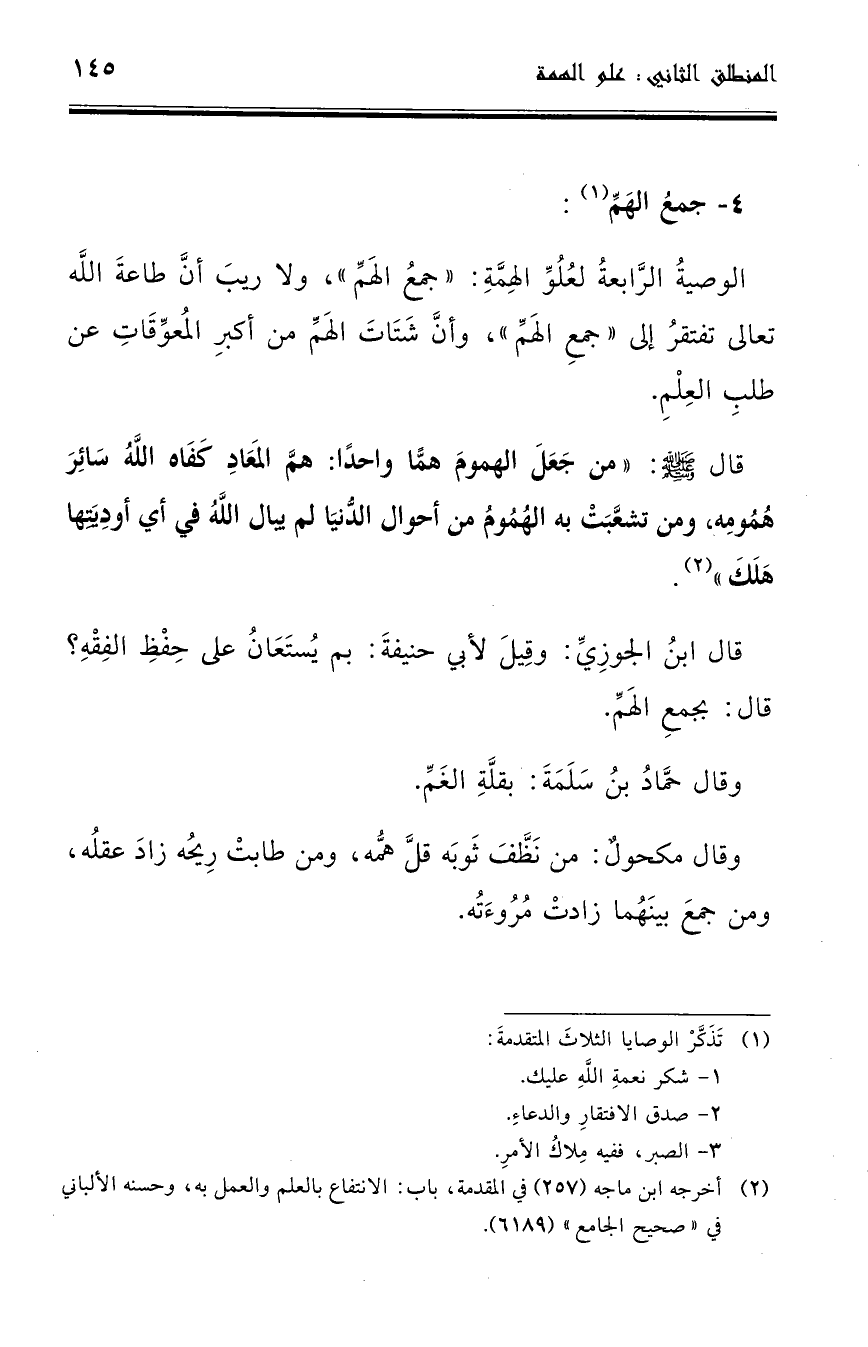 المنطلق الثاني : علو الهمة ١٤٥
٤- جمعُ الهَمِّ(١) :
الوصيةُ الرَّابعةُ لعُلُوِّ الهِمَّةِ: «جمعُ الهَمِّ»، ولا ريبَ أنَّ طاعةَ اللَّه
تعالى تفتقرُ إلى «جمعِ الهَمِّ»، وأنَّ شَتَاتَ الهَمِّ من أكبرِ المُعوِّقَاتِ عن
طلبِ العِلْمِ.
قال ﷺ: «من جَعَلَ الهمومَ همًّا واحدًا: همَّ المَعَادِ كَفَاه اللَّهُ سَائِرَ
هُمُومِه، ومن تشعَّبَتْ به الهُمُومُ من أحوال الدُّنيَا لم يبال اللَّهُ في أي أودِيَتِها
هَلَكَ»(٢).
قال ابنُ الجوزِيِّ: وقِيلَ لأبي حنيفةَ: بم يُستَعَانُ على حِفْظِ الفِقْهِ؟
قال: بجمعِ الهَمِّ.
وقال حمَّادُ بنُ سَلَمَةَ: بقلَّةِ الغَمِّ.
وقال مكحولٌ: من نَظَّفَ ثَوبَه قلَّ همُّه، ومن طابتْ رِيحُه زادَ عقلُه،
ومن جمعَ بينَهُما زادتْ مُرُوءَتُه.
(١) تَذَكَّرْ الوصايا الثلاثَ المتقدمةَ:
١- شكر نعمةِ اللَّهِ عليك.
٢- صدق الافتقارِ والدعاءِ.
٣- الصبر، ففيه مِلاكُ الأمرِ.
(٢) أخرجه ابن ماجه (٢٥٧) في المقدمة، باب: الانتفاع بالعلم والعمل به، وحسنه الألباني
في «صحيح الجامع» (٦١٨٩).